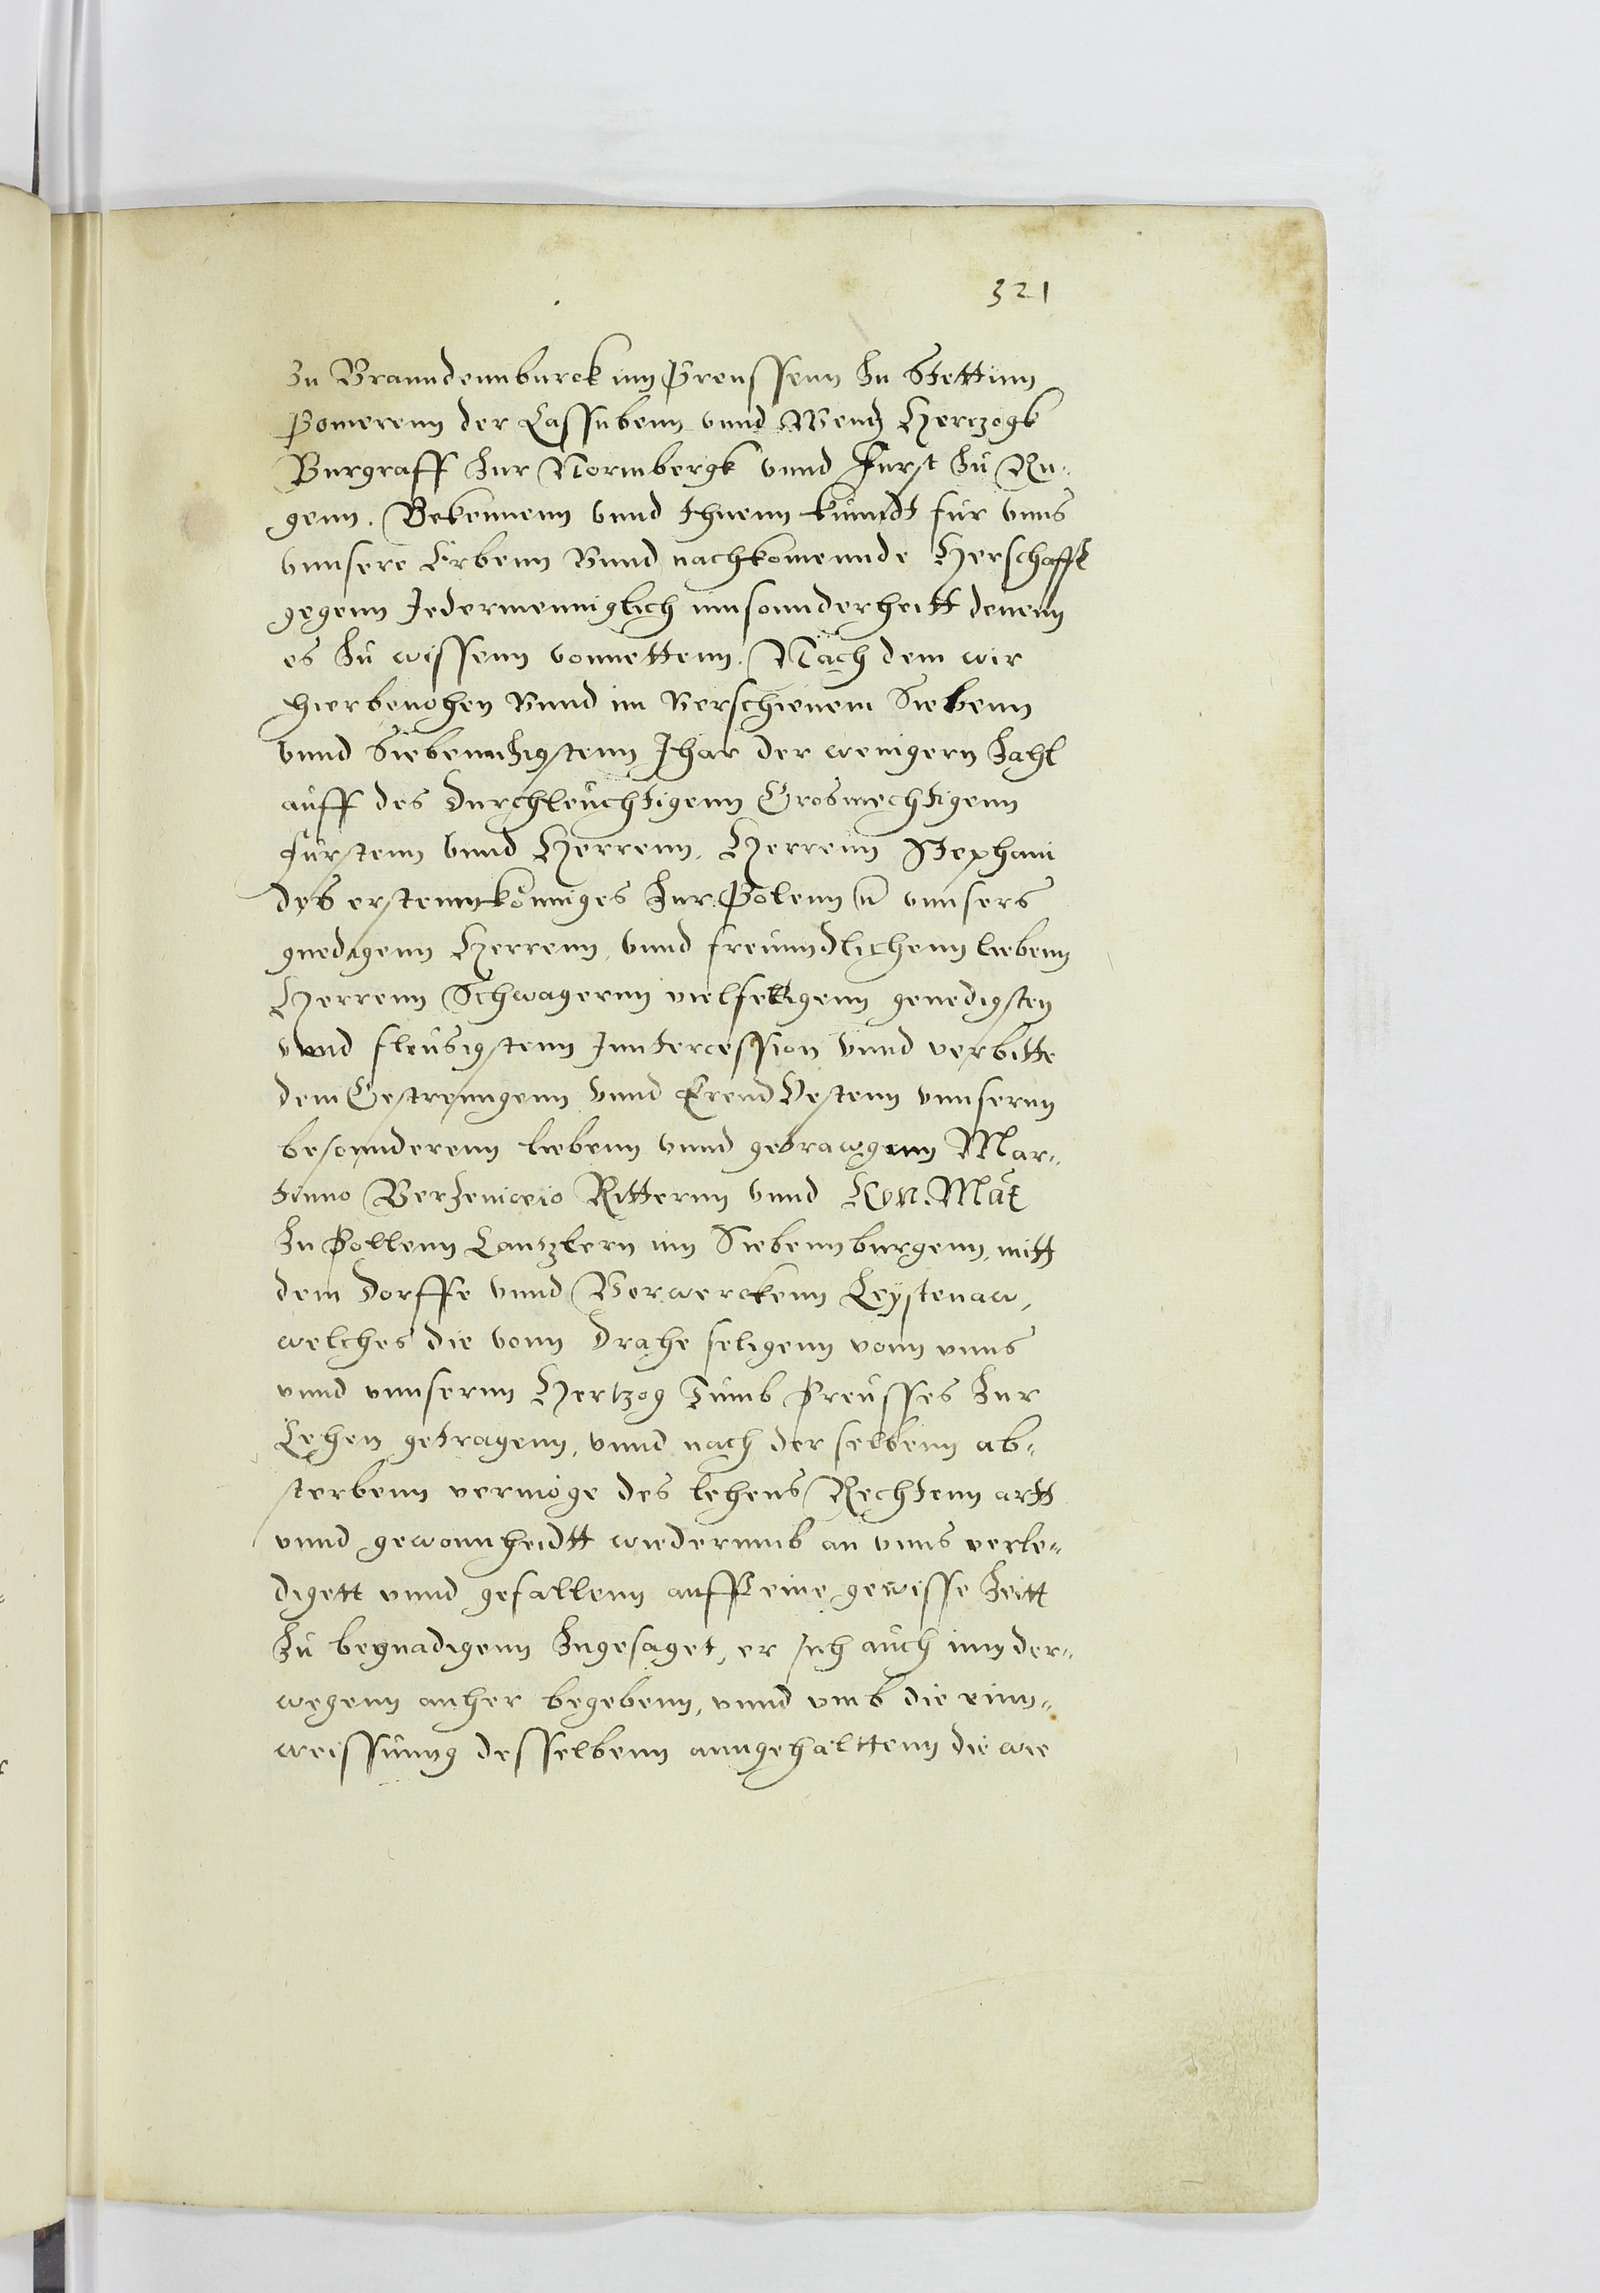 321
Zu Branndennburck inn Preussenn Zu Stettinn
Pomerenn der Cassubenn vnnd Wendẽ Hertzogk
Burgraff Zur Normbergk vnnd Furst Zu Ru-
genn. Bekennenn vnnd thuenn kunndt fur vnns
vnnsere Erbenn Vnnd nachkomennde Herschafft
gegenn Jedermenniglich innsonnderheitt denenn
es Zu wissenn vonnettenn. Nach dem wir
hierbeuohen Vnnd im Verschienem Siebenn
vnnd Siebenntzigstenn Jhar der wenigern Zahl
auff des Durchleuchtigenn Grosmechtigenn
furstenn vnnd Herrenn, Herrenn Stephani
des erstenn Könniges Zur Polenn vnnsers
gnedigenn Herrenn, vnnd freunndlichenn liebenn
Herrenn Schwagernn vielfelligenn genedigsten
vnnd fleusigstenn Inntercession vnnd verbitte
dem Gestrenngenn vnnd ErendVestenn vnnsernn
besonnderenn liebenn vnnd getrawgenn Mar-
tinno Berzeuiceio Ritternn vnnd Kon. Mat
Zu Pollenn Cantzlern inn Siebennburgenn, mitt
dem Dorffe vnnd Vorwerckenn Leystenaw,
welches die vonn Drahe seligenn vonn vnns
vnnd vnnsernn Hertzog Tumb Preusses Zur
Lehen getragenn, vnnd nach der selbenn ab-
sterbenn vermöge des lehens Rechtenn artt
vnnd gewonnheidtt wiederumb an vnns verle-
digett vnnd gefallenn aufft eine gewisse Zeitt
Zu begnadigenn Zugesaget, er sich auch inn der-
wegenn anher begebenn, vnnd vmb die einn-
weissunng desselbenn anngehalttenn die wie